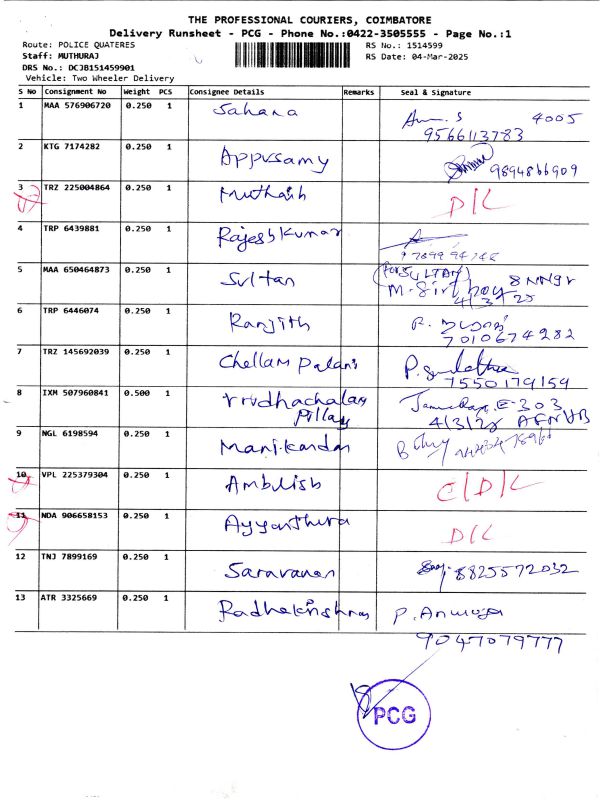 THE PROFESSIONAL COURIERS, COIMBATORE
Delivery Runsheet - PCG - Phone No.:0422-3505555 - Page No.:1
Route: POLICE QUATERES RS No.: 1514599
Staff: MUTHURAJ RS Date: 04-Mar-2025
DRS No.: DCJB151459901
Vehicle: Two Wheeler Delivery
S No Consignment No Weight PCS Consignee Details Remarks Seal & Signature
1 MAA 576906720 0.250 1 Sahana 4005
9566113783
2 KTG 7174282 0.250 1 Appusamy 9894866909
3 TRZ 225004864 0.250 1 Muthaish D/L
4 TRP 6439881 0.250 1 Rajeshkumar
5 MAA 650464873 0.250 1 Sultan (for SULTAN)
4/3/25
6 TRP 6446074 0.250 1 Ranjith R.
7010674282
7 TRZ 145692039 0.250 1 Chellam Palani P.
7550179159
8 IXM 507960841 0.500 1 Vrudhachalam E-303
Pillay 4/3/25
9 NGL 6198594 0.250 1 Manikandan B
10 VPL 225379304 0.250 1 Ambulish C/D/L
11 NDA 906658153 0.250 1 Ayyanthura D/L
12 TNJ 7899169 0.250 1 Saravanan 8825572032
13 ATR 3325669 0.250 1 Radhakrishnan P.
9047079777
PCG